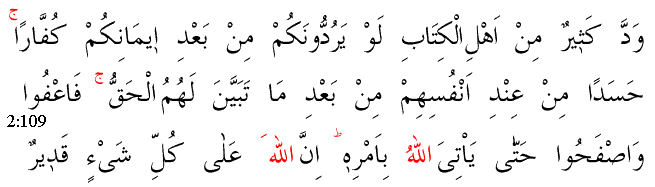 وَدَّ كَثٖيرٌ مِنْ اَهْلِ الْكِتَابِ لَوْ يَرُدُّونَكُمْ مِنْ بَعْدِ اٖيمَانِكُمْ كُفَّارًاۚ
حَسَدًا مِنْ عِنْدِ اَنْفُسِهِمْ مِنْ بَعْدِ مَا تَبَيَّنَ لَهُمُ الْحَقُّۚ فَاعْفُوا
2:109
وَاصْفَحُوا حَتّٰى يَاْتِىَ اللّٰهُ بِاَمْرِهٖؕ اِنَّ اللّٰهَ عَلٰى كُلِّ شَىْءٍ قَدٖيرٌ